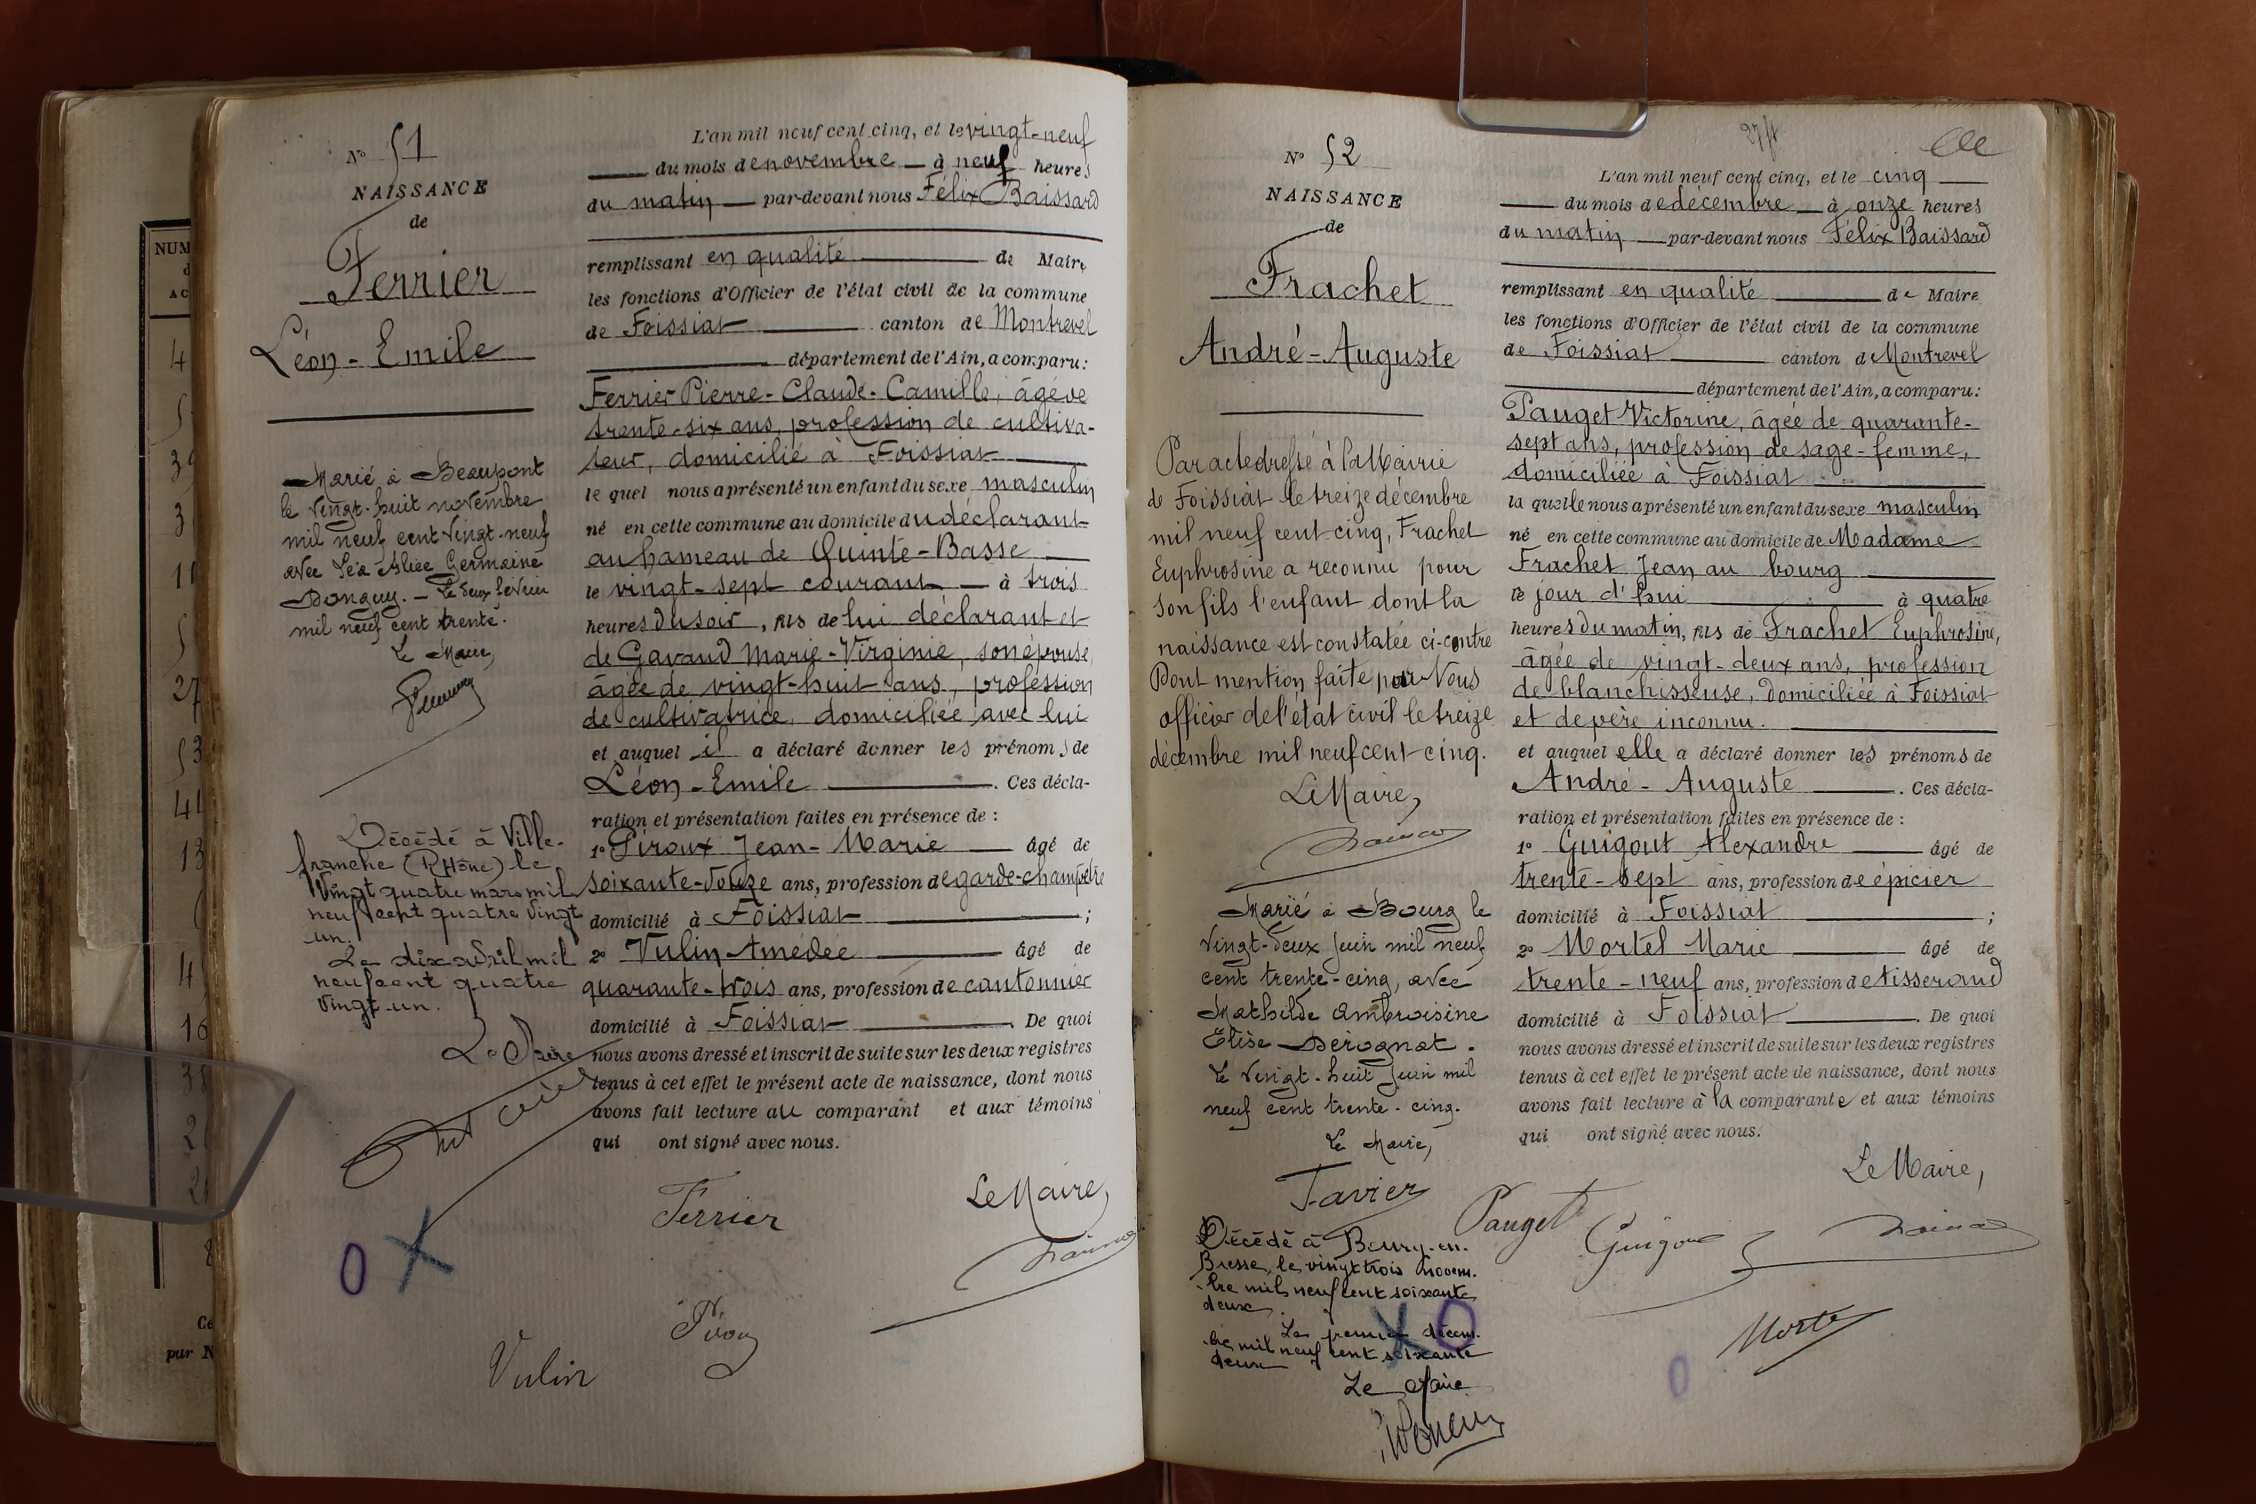 NUM
AC
4
3
27
53
13
16
Ce
par N
N° 51
NAISSANCE
de
Ferrier
Léon-Emile
Marié à Beaupont
le vingt-huit novembre
mil neuf cent vingt-neuf
avec Léa Alice Germaine
Donguy. - Le deux février
mil neuf cent trente.
Le Maire,
Décédé à Ville-
franche (Rhône) le
Vingt quatre mars mil
neuf cent quatre vingt
un.
Le dix avril mil
neuf cent quatre
Vingt-un.
Le Maire
L'an mil neuf cent cinq, et le vingt-neuf
du mois de novembre à neuf heures
du matin par-devant nous Félix Baissard
remplissant en qualité de Maire
les fonctions d'Officier de l'état civil de la commune
de Foissiat canton de Montrevel
département de l'Ain, a comparu:
Ferrier Pierre-Claude-Camille, âgé de
trente-six ans, profession de cultiva-
teur, domicilié à Foissiat
le quel nous a présenté un enfant du sexe masculin
né en cette commune au domicile du déclarant
au hameau de Quinte-Basse
le vingt-sept courant à trois
heures du soir, fils de lui déclarant et
de Gavand Marie-Virginie, son épouse,
âgée de vingt-huit ans, profession
de cultivatrice, domiciliée avec lui
et auquel il a déclaré donner les prénoms de
Léon-Emile. Ces décla-
ration et présentation faites en présence de :
1° Piroux Jean-Marie âgé de
soixante-douze ans, profession de garde-champêtre
domicilié à Foissiat ;
2° Vulin Amédée âgé de
quarante-trois ans, profession de cantonnier
domicilié à Foissiat. De quoi
nous avons dressé et inscrit de suite sur les deux registres
tenus à cet effet le présent acte de naissance, dont nous
avons fait lecture au comparant et aux témoins
qui ont signé avec nous.
Ferrier
Le Maire,
Vulin
N° 52
NAISSANCE
de
Frachet
André-Auguste
Par acte dressé à la Mairie
de Foissiat le treize décembre
mil neuf cent cinq, Frachet
Euphrosine a reconnu pour
son fils l'enfant dont la
naissance est constatée ci-contre
Dont mention faite par Nous
officier de l'état civil le treize
décembre mil neuf cent cinq.
Le Maire,
Marié à Bourg le
vingt-deux juin mil neuf
cent trente-cinq, avec
Mathilde Ambroisine
Elise Dérognat.
Le vingt-huit juin mil
neuf cent trente-cinq.
Le Maire,
Favier
Décédé à Bourg-en-
Bresse, le vingt trois novem-
bre mil neuf cent soixante
deux.
Le premier décem-
bre mil neuf cent soixante
deux
Le Maire
L'an mil neuf cent cinq, et le cinq
du mois de décembre à onze heures
du matin par-devant nous Félix Baissard
remplissant en qualité de Maire
les fonctions d'Officier de l'état civil de la commune
de Foissiat canton de Montrevel
département de l'Ain, a comparu:
Pauget Victorine, âgée de quarante-
sept ans, profession de sage-femme,
domiciliée à Foissiat
la quelle nous a présenté un enfant du sexe masculin
né en cette commune au domicile de Madame
Frachet Jean au bourg
le jour d'hui à quatre
heures du matin, fils de Frachet Euphrosine,
âgée de vingt-deux ans, profession
de blanchisseuse, domiciliée à Foissiat
et de père inconnu.
et auquel elle a déclaré donner les prénoms de
André-Auguste. Ces décla-
ration et présentation faites en présence de :
1° Guigout Alexandre âgé de
trente-sept ans, profession de épicier
domicilié à Foissiat ;
2° Mortel Marie âgé de
trente-neuf ans, profession de tisserand
domicilié à Foissiat. De quoi
nous avons dressé et inscrit de suite sur les deux registres
tenus à cet effet le présent acte de naissance, dont nous
avons fait lecture à la comparante et aux témoins
qui ont signé avec nous.
Le Maire,
Pauget